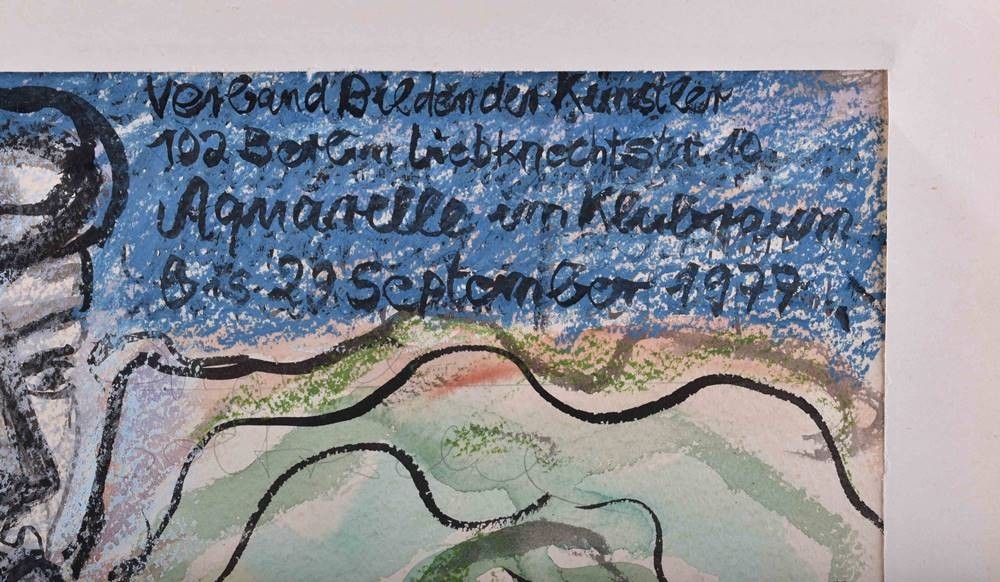 Verband Bildender Künstler
102 Berlin Liebknechtstr. 10
Aquarelle im Klubraum
Bis 29 September 1977